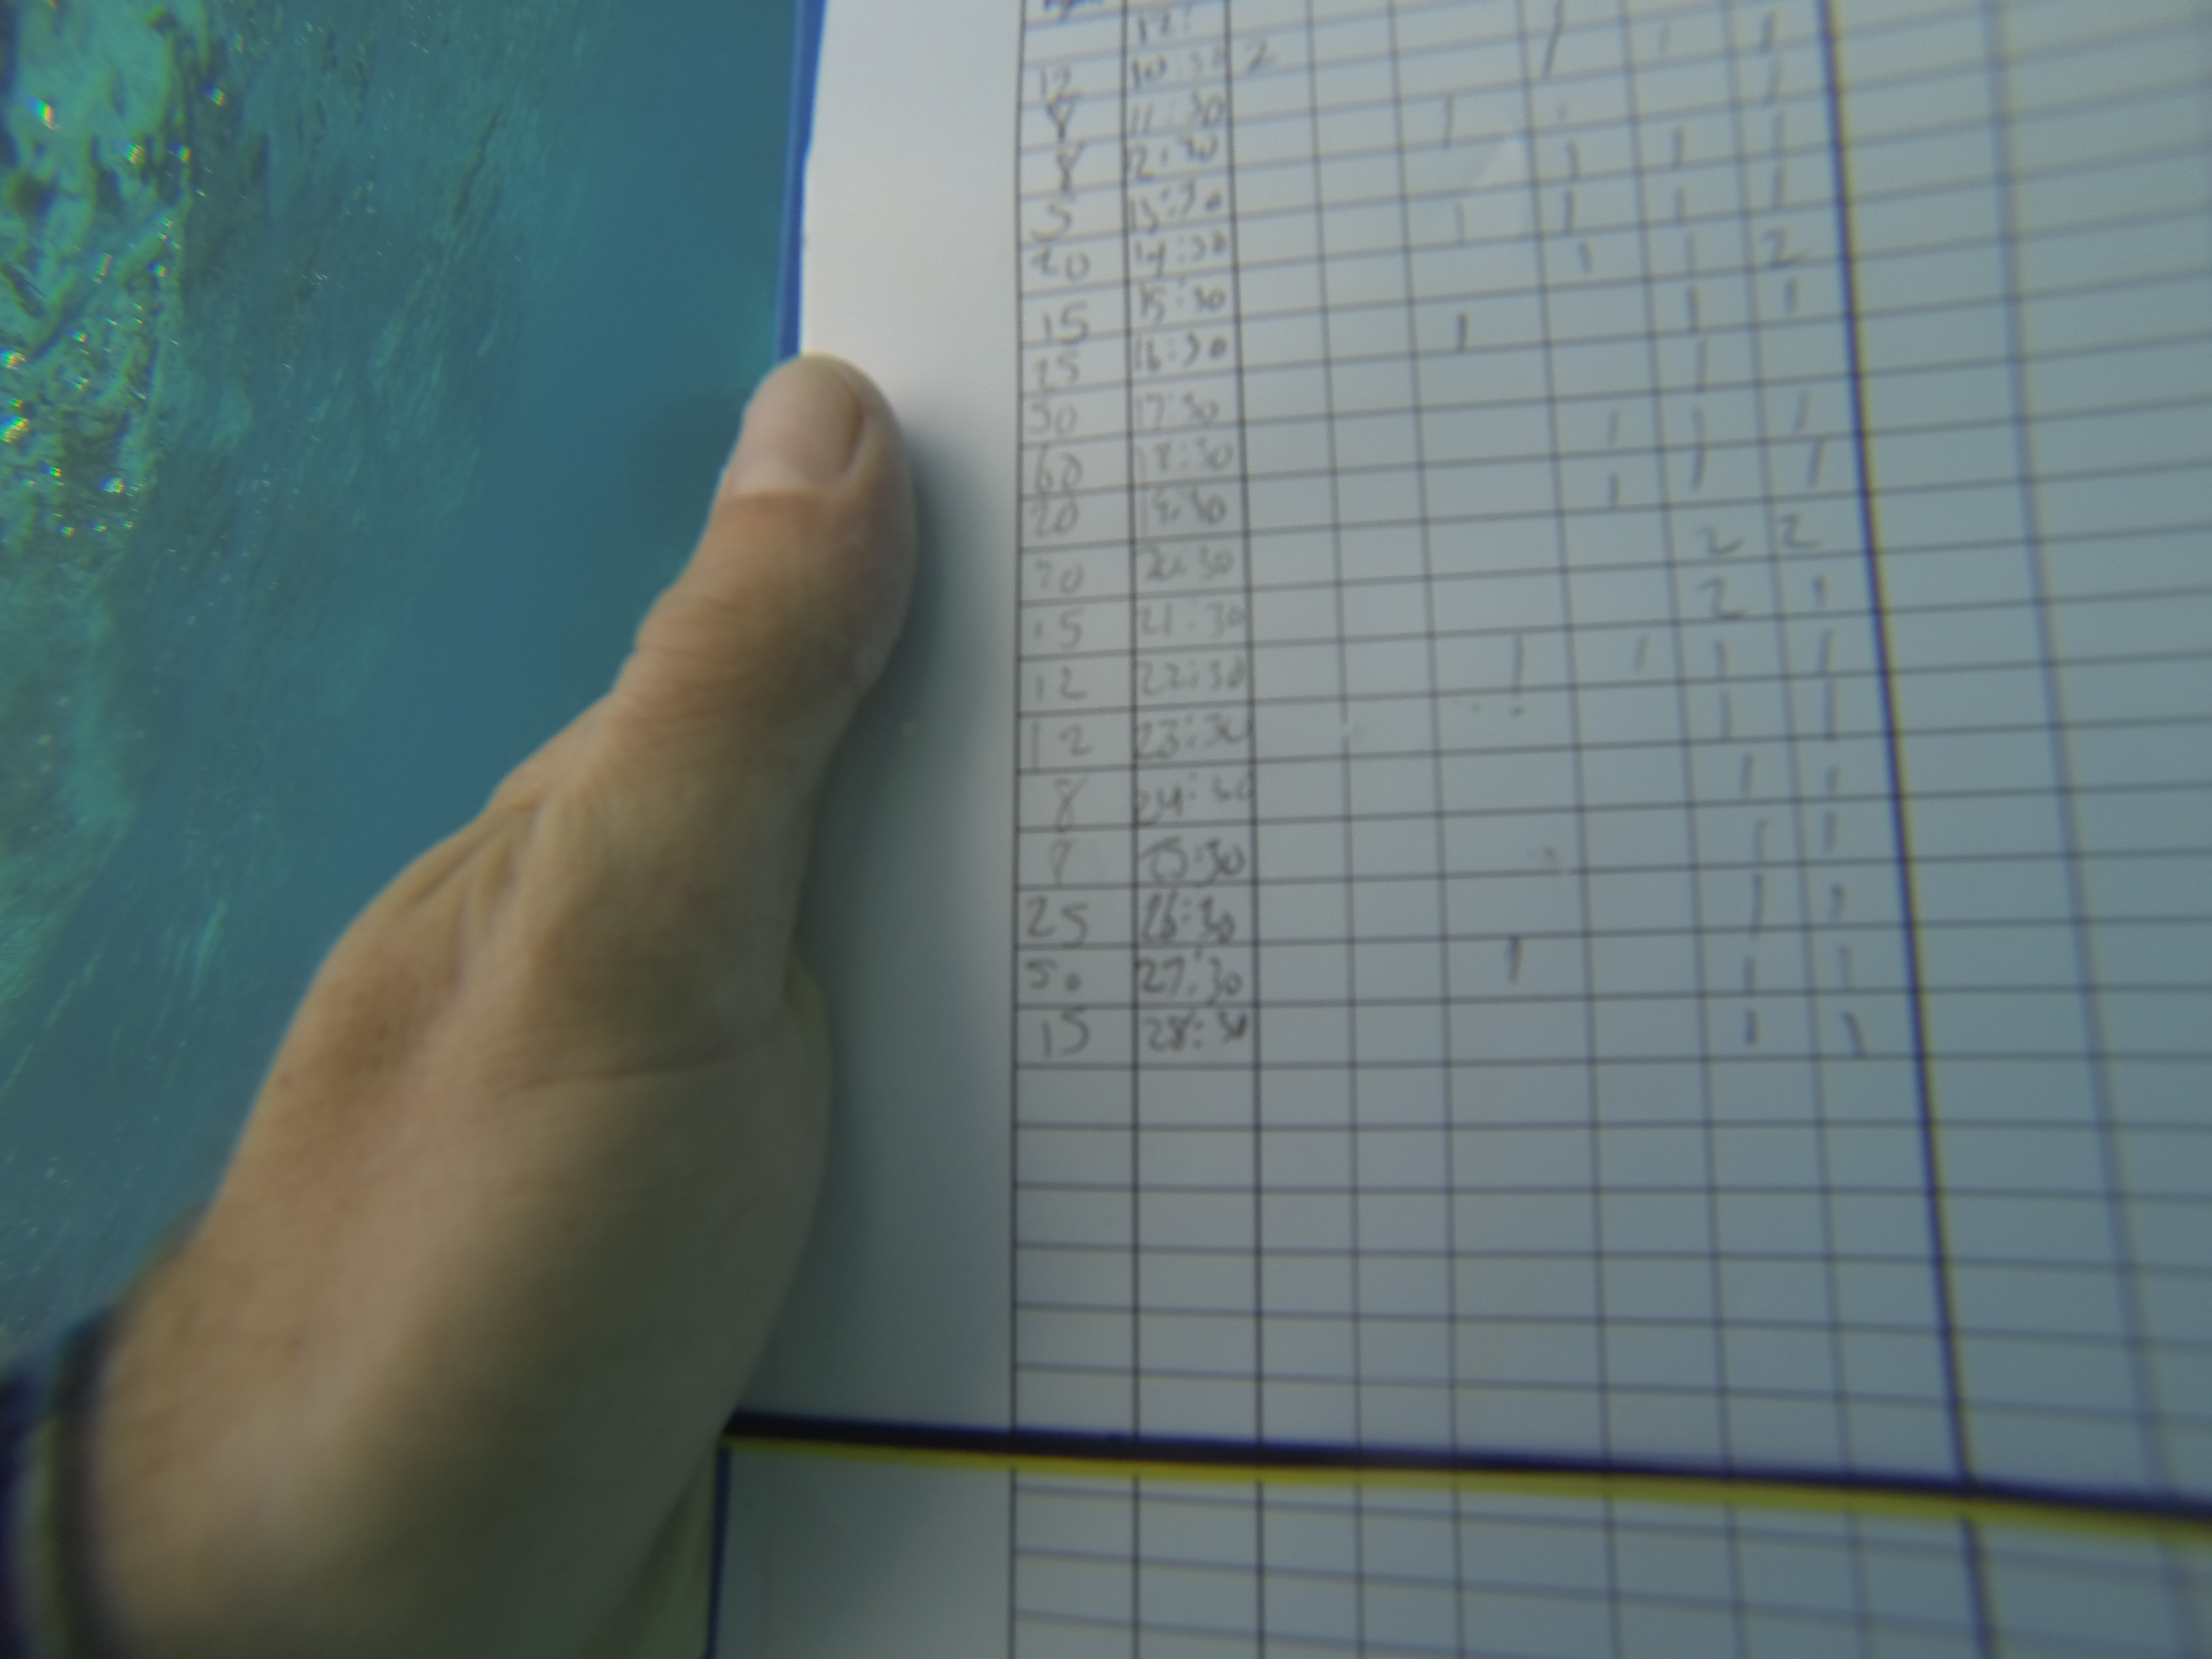 12 10:30 2 1 1 1
8 11:30 1 1
8 12:30 1 1 1
5 13:30 1 1 1 1
20 14:30 1 1 2
15 15:30 1 1
25 16:30 1 1
50 17:30 1 1 1
60 18:30 1 1 1
20 19:30 2 2
20:30 2 1
15 21:30 1 1 1 1
12 22:30 1 1
12 23:30 1 1
8 24:30 1 1
25:30 1 1
25 26:30 1 1
50 27:30 1 1 1
15 28:30 1 1